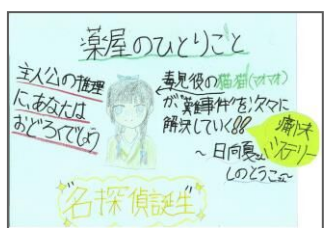 薬屋のひとりごと
主人公の推理
に、あなたは
おどろくでしょう
毒見役の猫猫(マオマオ)
が"難事件"を次々に
解決していく!!
痛快
ミステリー
～日向夏さん
しのとうこさん～
"名探偵誕生"